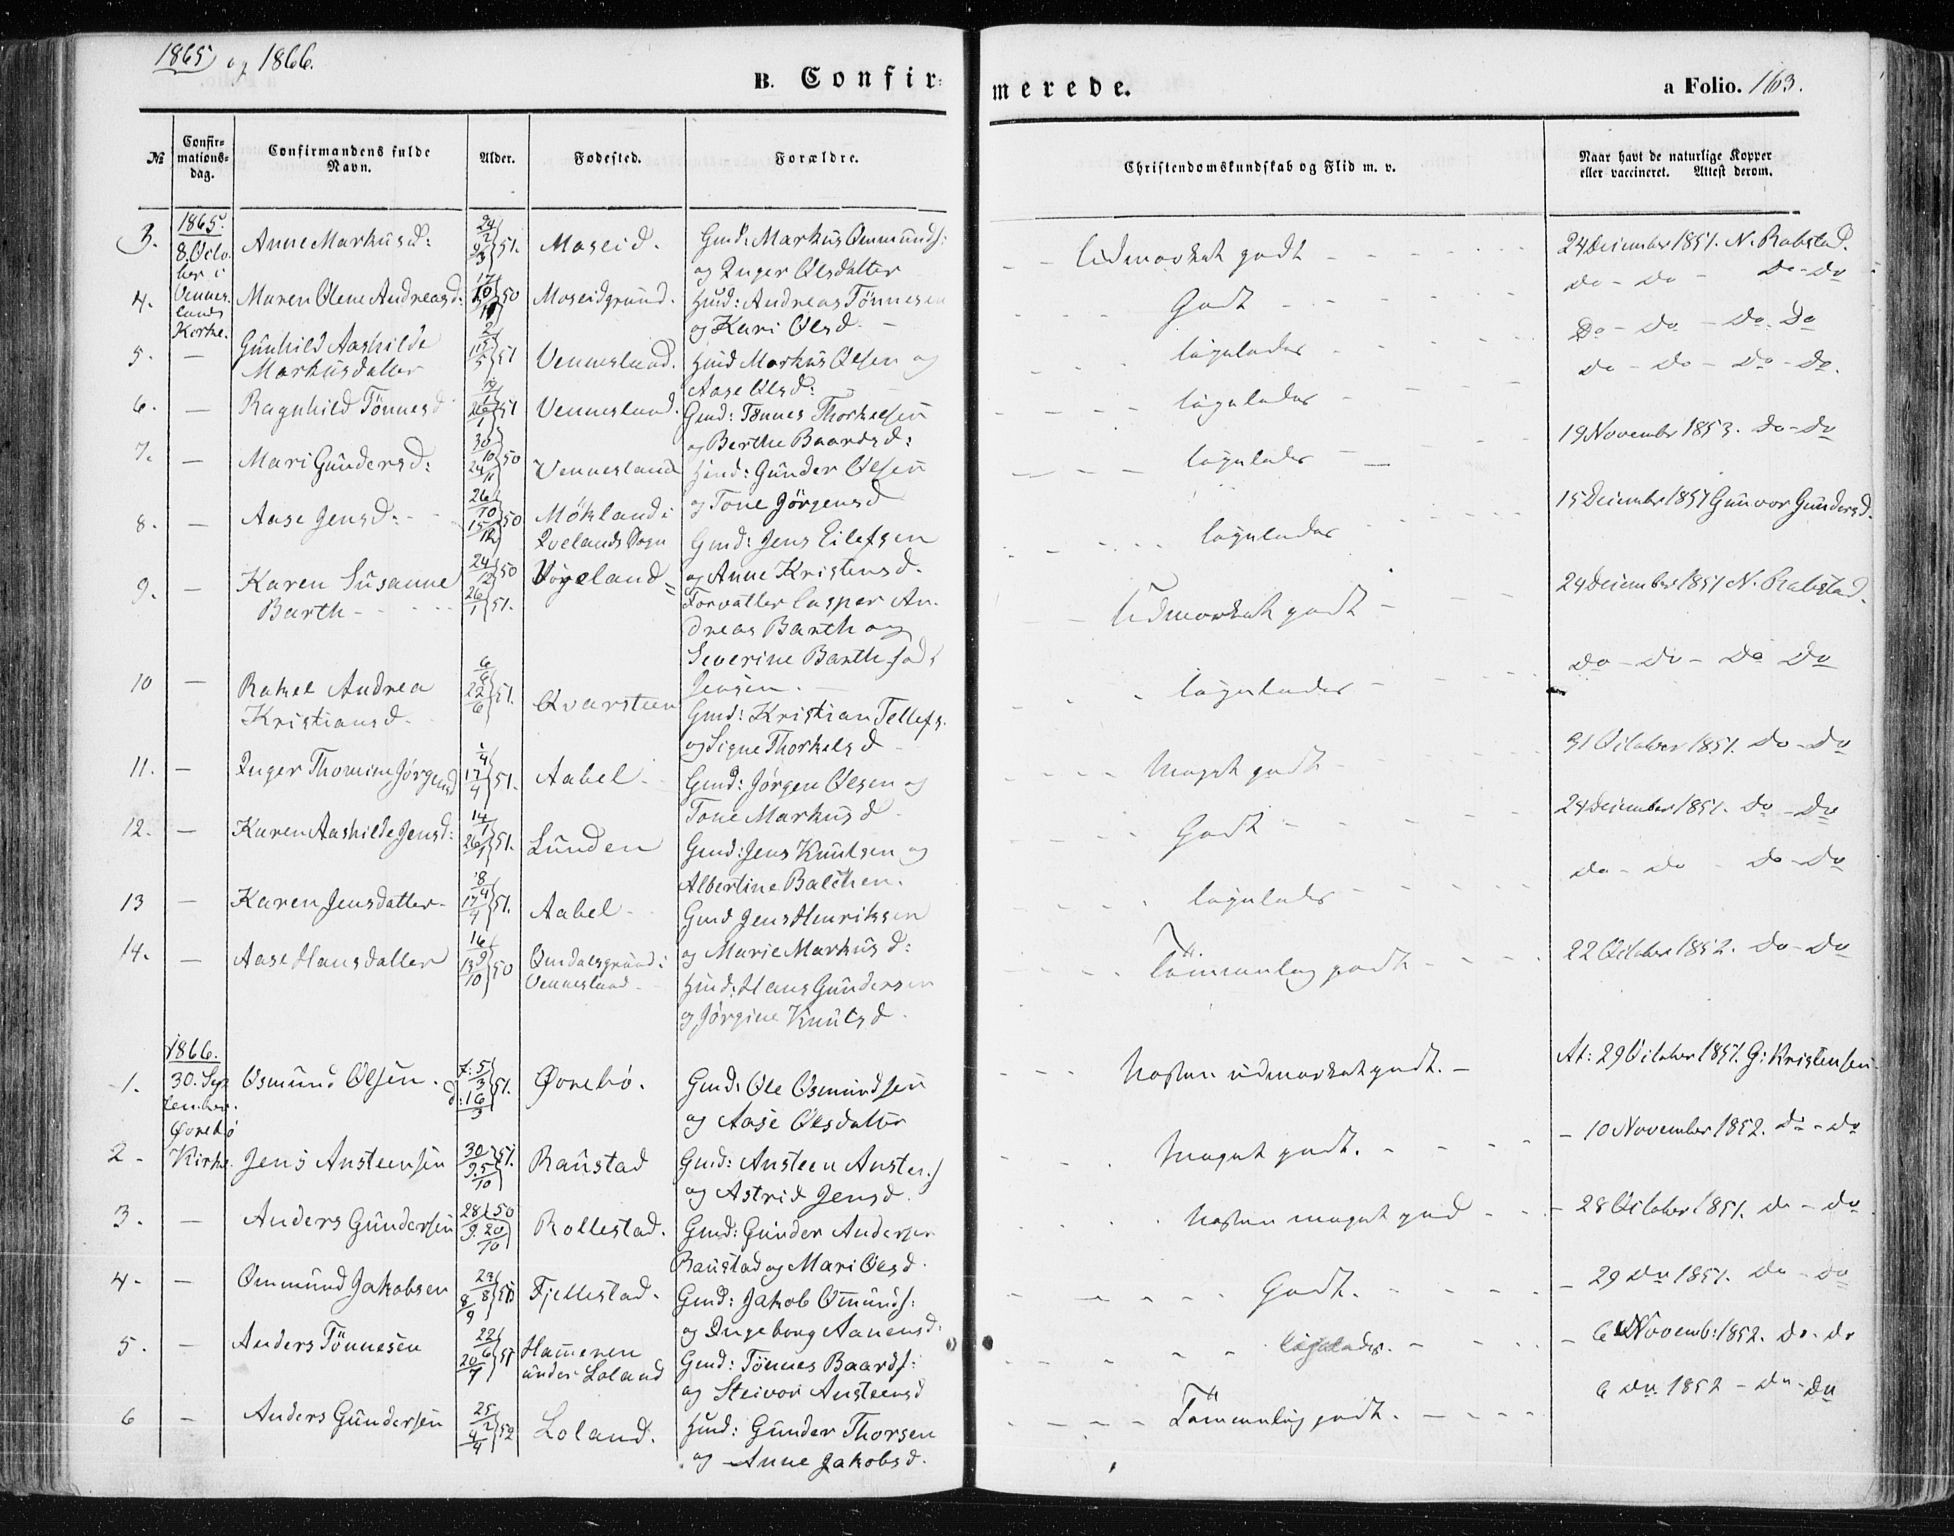 1865 og 1866.
B. Confirmerede.
a Folio. 163.
№
Confirmations-dag.
Confirmandens fulde Navn.
Alder.
Fødested.
Forældre.
Christendomskundskab og Flid m. v.
Naar havt de naturlige Kopper eller vaccineret. Attest derom.
1865.
3. 8. October i Venneslands Kirke. Anne Markusd: 24/2 51. Moseid. Gmd: Markus Ommunds: og Inger Olsdatter Udmærket godt 24 December 1851. N. Robstad.
4. Maren Olene Andreasd: 50 Moseidgrund. Hmd: Andreas Tönnesen og Kari Olsd. Godt do - do - do - do
5. — Gunhild Aashilde Markusdatter 51 Vennesland. Hmd Markus Olsen og Aase Olsd: ligeledes Do - do - do. Do
6. — Ragnhild Tönnesd 26/1 51 Vennesland. Gmd: Tönnes Thorkelsen og Berthe Baardsd: ligeledes do - do - do - do.
7. — Mari Gundersd: 30/10 24/11 50 Vennesland Hmd: Gunder Olsen og Tone Jörgensd ligeledes 19 November 1853. do - do
8. — Aase Jensd: 26/10 15/12 50 Mökland i Ivelands Sogn Gmd: Jens Eilefsen og Anne Kristensd. ligeledes 15 December 1851 Gunvor Gundersd.
9. — Karen Susanne Barth 24/12 50 26/1 51. Vigeland Forvalter Casper Andreas Barth og Severine Barth fød Jensen. Udmærket godt 24 December 1851 N. Robstad.
10 — Rakel Andrea Kristiansd. 22/6 51. Qvarstein Gmd: Kristian Tellefs. og Signe Thorkelsd ligeledes do - do - do do
11. — Inger Thomine Jörgensd 17/4 51. Aabel Gmd: Jörgen Olsen og Tone Markusd. Meget godt 31 October 1851. do - do
12. — Karen Aashilde Jensd: 14/1 26/1 51. Lunden Gmd: Jens Knutsen og Albertine Balchen. Godt 24 December 1851. do - do
13 — Karen Jensdatter 8/4 17/4 51. Aabel Gmd Jens Henriksen og Marie Markusd: ligeledes do - do - do - do
14. — Aase Hansdatter 16/9 13/10 50 Omdalsgrund i Vennesland Hmd: Hans Gundersen og Jörgine Knutsd. Temmelig godt 22 October 1852. do - do
1866.
1. 30. September. Øvrebø Kirke. Osmund Olsen. f: 5/3 d: 16/3 51. Øvrebø. Gmd: Ole Osmundsen og Aase Olsdatter Næsten udmærket godt. At: 29 October 1851. G: Kristensen
2 - Jens Ansteensen 30/9 5/10 51. Raustad Gmd: Ansteen Anstens og Astrid Jensd. Meget godt. - 10 November 1852. do - do
3. — Anders Gundersen 28/9 20/10 50 Rollestad. Gmd: Gunder Andersen Raustad og Mari Olsd. Næsten meget god - 28 October 1851. do - do
4 — Ommund Jakobsen 29/8 8/9 50 Fjellestad. Gmd: Jakob Omunds: og Ingeborg Aanensd. Godt. - 29 do 1851. do - do
5. — Anders Tönnesen 22/6 20/7 51 Hameren under Loland Gmd: Tönnes Baards: og Steivor Ansteensd ligeledes. - 6 Novemb: 1852. do - do
6 — Anders Gundersen 25/2 4/4 52 Loland. Hmd: Gunder Thorsen og Anne Jakobsd. Temmelig godt. 6 do 1852 - do - do